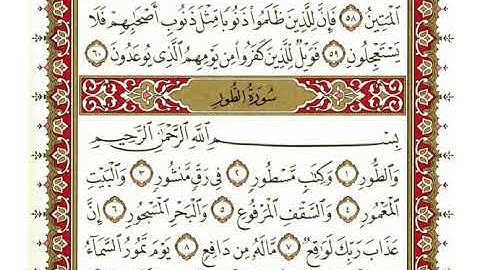 ٱلْمَتِينُ ٥٨ فَإِنَّ لِلَّذِينَ ظَلَمُوا۟ ذَنُوبًا مِّثْلَ ذَنُوبِ أَصْحَٰبِهِمْ فَلَا
يَسْتَعْجِلُونِ ٥٩ فَوَيْلٌ لِّلَّذِينَ كَفَرُوا۟ مِن يَوْمِهِمُ ٱلَّذِى يُوعَدُونَ ٦٠
سُورَةُ الطُّورِ
بِسْمِ ٱللَّهِ ٱلرَّحْمَٰنِ ٱلرَّحِيمِ
وَٱلطُّورِ ١ وَكِتَٰبٍ مَّسْطُورٍ ٢ فِى رَقٍّ مَّنشُورٍ ٣ وَٱلْبَيْتِ
ٱلْمَعْمُورِ ٤ وَٱلسَّقْفِ ٱلْمَرْفُوعِ ٥ وَٱلْبَحْرِ ٱلْمَسْجُورِ ٦ إِنَّ
عَذَابَ رَبِّكَ لَوَٰقِعٌ ٧ مَّا لَهُۥ مِن دَافِعٍ ٨ يَوْمَ تَمُورُ ٱلسَّمَآءُ